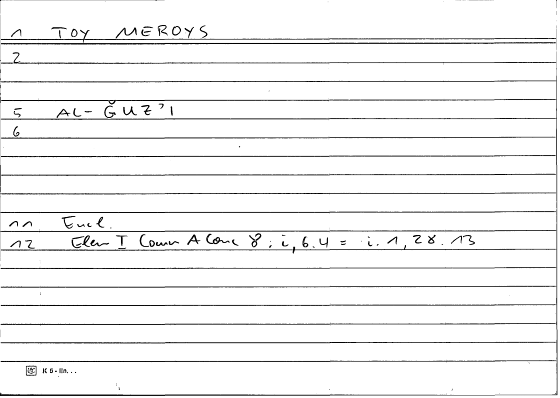 1 TOY MEROYS
2
5 AL-ǦUZ'I
6
11 Eucl.
12 Elem I Comm A Conc 8: i, 6.4 = i. 1, 28. 13
K 6 - lin...